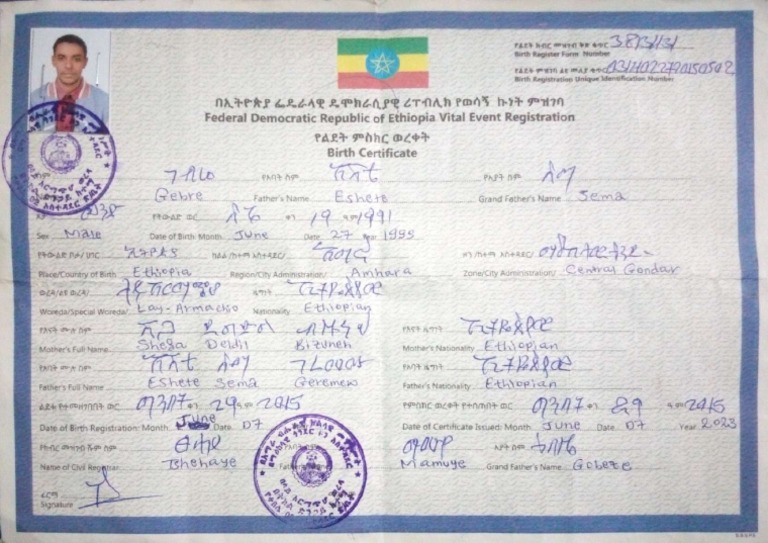 የልደት ክብር መዝገብ ቅጽ ቁጥር 383/3/31
Birth Register Form Number
Birth Registration Unique Identification Number
በኢትዮጵያ ፌዴራላዊ ዴሞክራሲያዊ ሪፐብሊክ የወሳኝ ኩነት ምዝገባ
Federal Democratic Republic of Ethiopia Vital Event Registration
የልደት ምስክር ወረቀት
Birth Certificate
ስም ገብሬ የአባት ስም እሸቴ የአያት ስም ሰማ
Gebre Father's Name Eshete Grand Father's Name Sema
ፆታ ወንድ የትውልድ ወር ሰኔ ቀን 19 ዓ.ም 1991
Sex Male Date of Birth: Month June Date 27 Year 1999
የትውልድ ቦታ/ ሀገር ኢትዮጵያ ክልል/ከተማ አስተዳደር/ አማራ ዞን/ከተማ አስተዳደር/
Place/Country of Birth Ethiopia Region/City Administration/ Amhara Zone/City Administration/ Central Gondar
ወረዳ/ልዩ ወረዳ/ ዜግነት ኢትዮጵያዊ
Woreda/Special Woreda/ Lay-Armacho Nationality Ethiopian
የእናት ሙሉ ስም የእናት ዜግነት ኢትዮጵያዊ
Mother's Full Name Shega Deldil Bizuneh Mother's Nationality Ethiopian
የአባት ሙሉ ስም እሸቴ ሰማ ገረመው የአባት ዜግነት ኢትዮጵያዊ
Father's Full Name Eshete Sema Geremew Father's Nationality Ethiopian
ልደቱ የተመዘገበበት ወር ግንቦት ቀን 29 ዓ.ም 2015 የምስክር ወረቀቱ የተሰጠበት ወር ግንቦት ቀን ዓ.ም 2015
Date of Birth Registration: Month June Date 07 Date of Certificate Issued: Month June Date 07 Year 2023
የክብር መዝገብ ሹም ስም ፀሀየ የአባት ስም ማሙየ የአያት ስም
Name of Civil Registrar Tsehaye Father's Name Mamuye Grand Father's Name Gobeze
ፊርማ
Signature